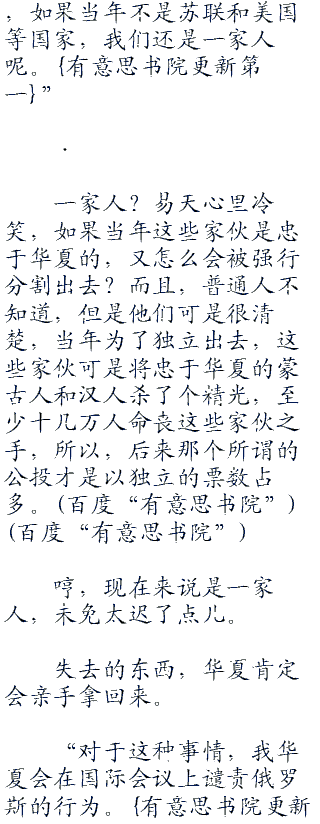 ，如果当年不是苏联和美国
等国家，我们还是一家人
呢。{有意思书院更新第
一}”
.
一家人？易天心里冷
笑，如果当年这些家伙是忠
于华夏的，又怎么会被强行
分割出去？而且，普通人不
知道，但是他们可是很清
楚，当年为了独立出去，这
些家伙可是将忠于华夏的蒙
古人和汉人杀了个精光，至
少十几万人命丧这些家伙之
手，所以，后来那个所谓的
公投才是以独立的票数占
多。(百度“有意思书院”)
(百度“有意思书院”)
哼，现在来说是一家
人，未免太迟了点儿。
失去的东西，华夏肯定
会亲手拿回来。
“对于这种事情，我华
夏会在国际会议上谴责俄罗
斯的行为。{有意思书院更新